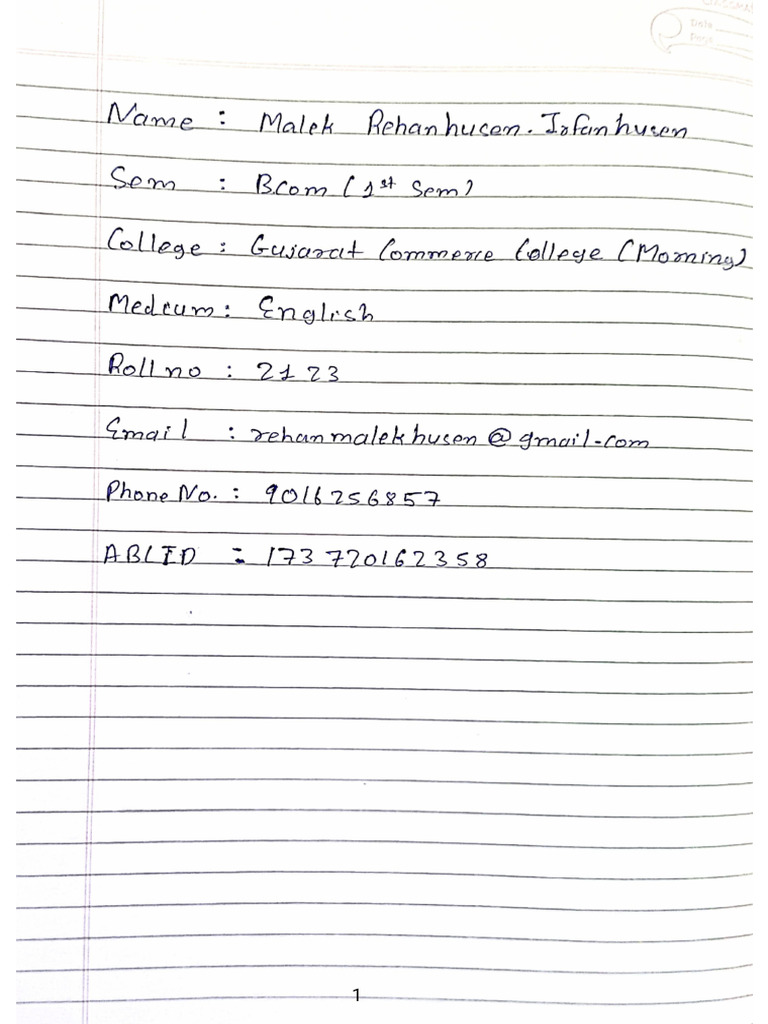 Date
Page
Name : Malek Rehanhusen. Irfanhusen
Sem : Bcom (1st Sem)
College : Gujarat Commerce College (Morning)
Medium : English
Roll no : 2123
Email : rehanmalekhusen@gmail.com
Phone No. : 9016256857
ABCID : 173720162358
1